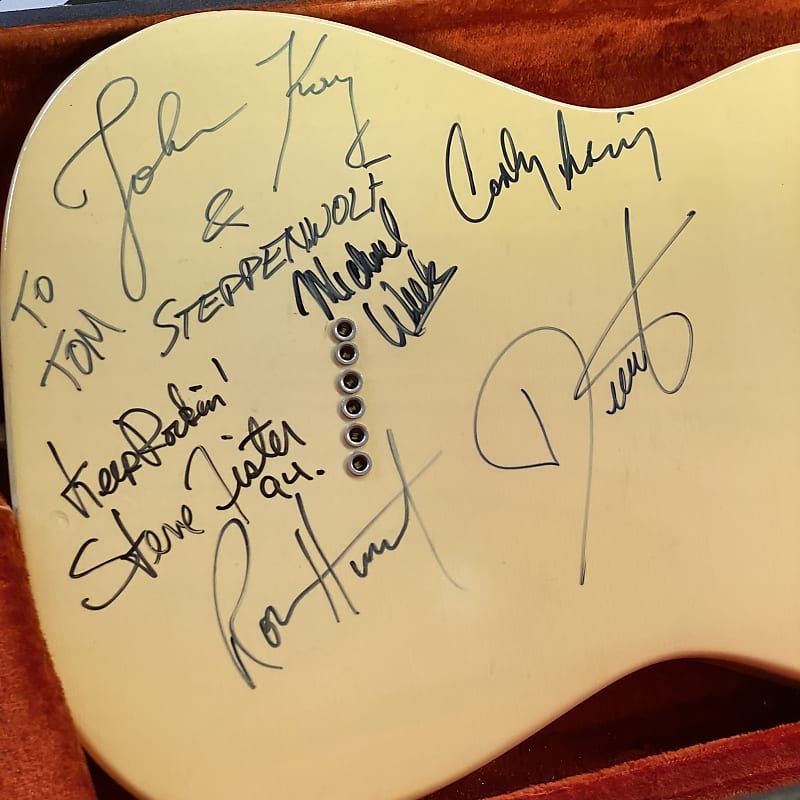 John Kay
&
STEPPENWOLF
TO
TOM
Michael
Wilk
Keep Rockin'
Steve Fister
94.
Ron Hurst